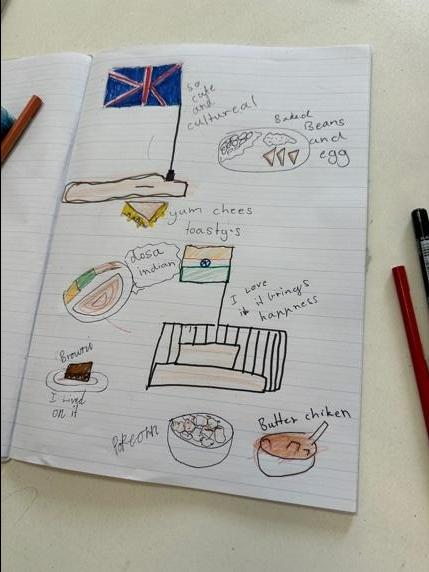 so
cute
and
cultureal
Baked
Beans
and
egg
yum chees
toastys
dosa
indian
I Love
it it brings
happness
Browni
I Lived
on it
Popcorn
Butter chiken